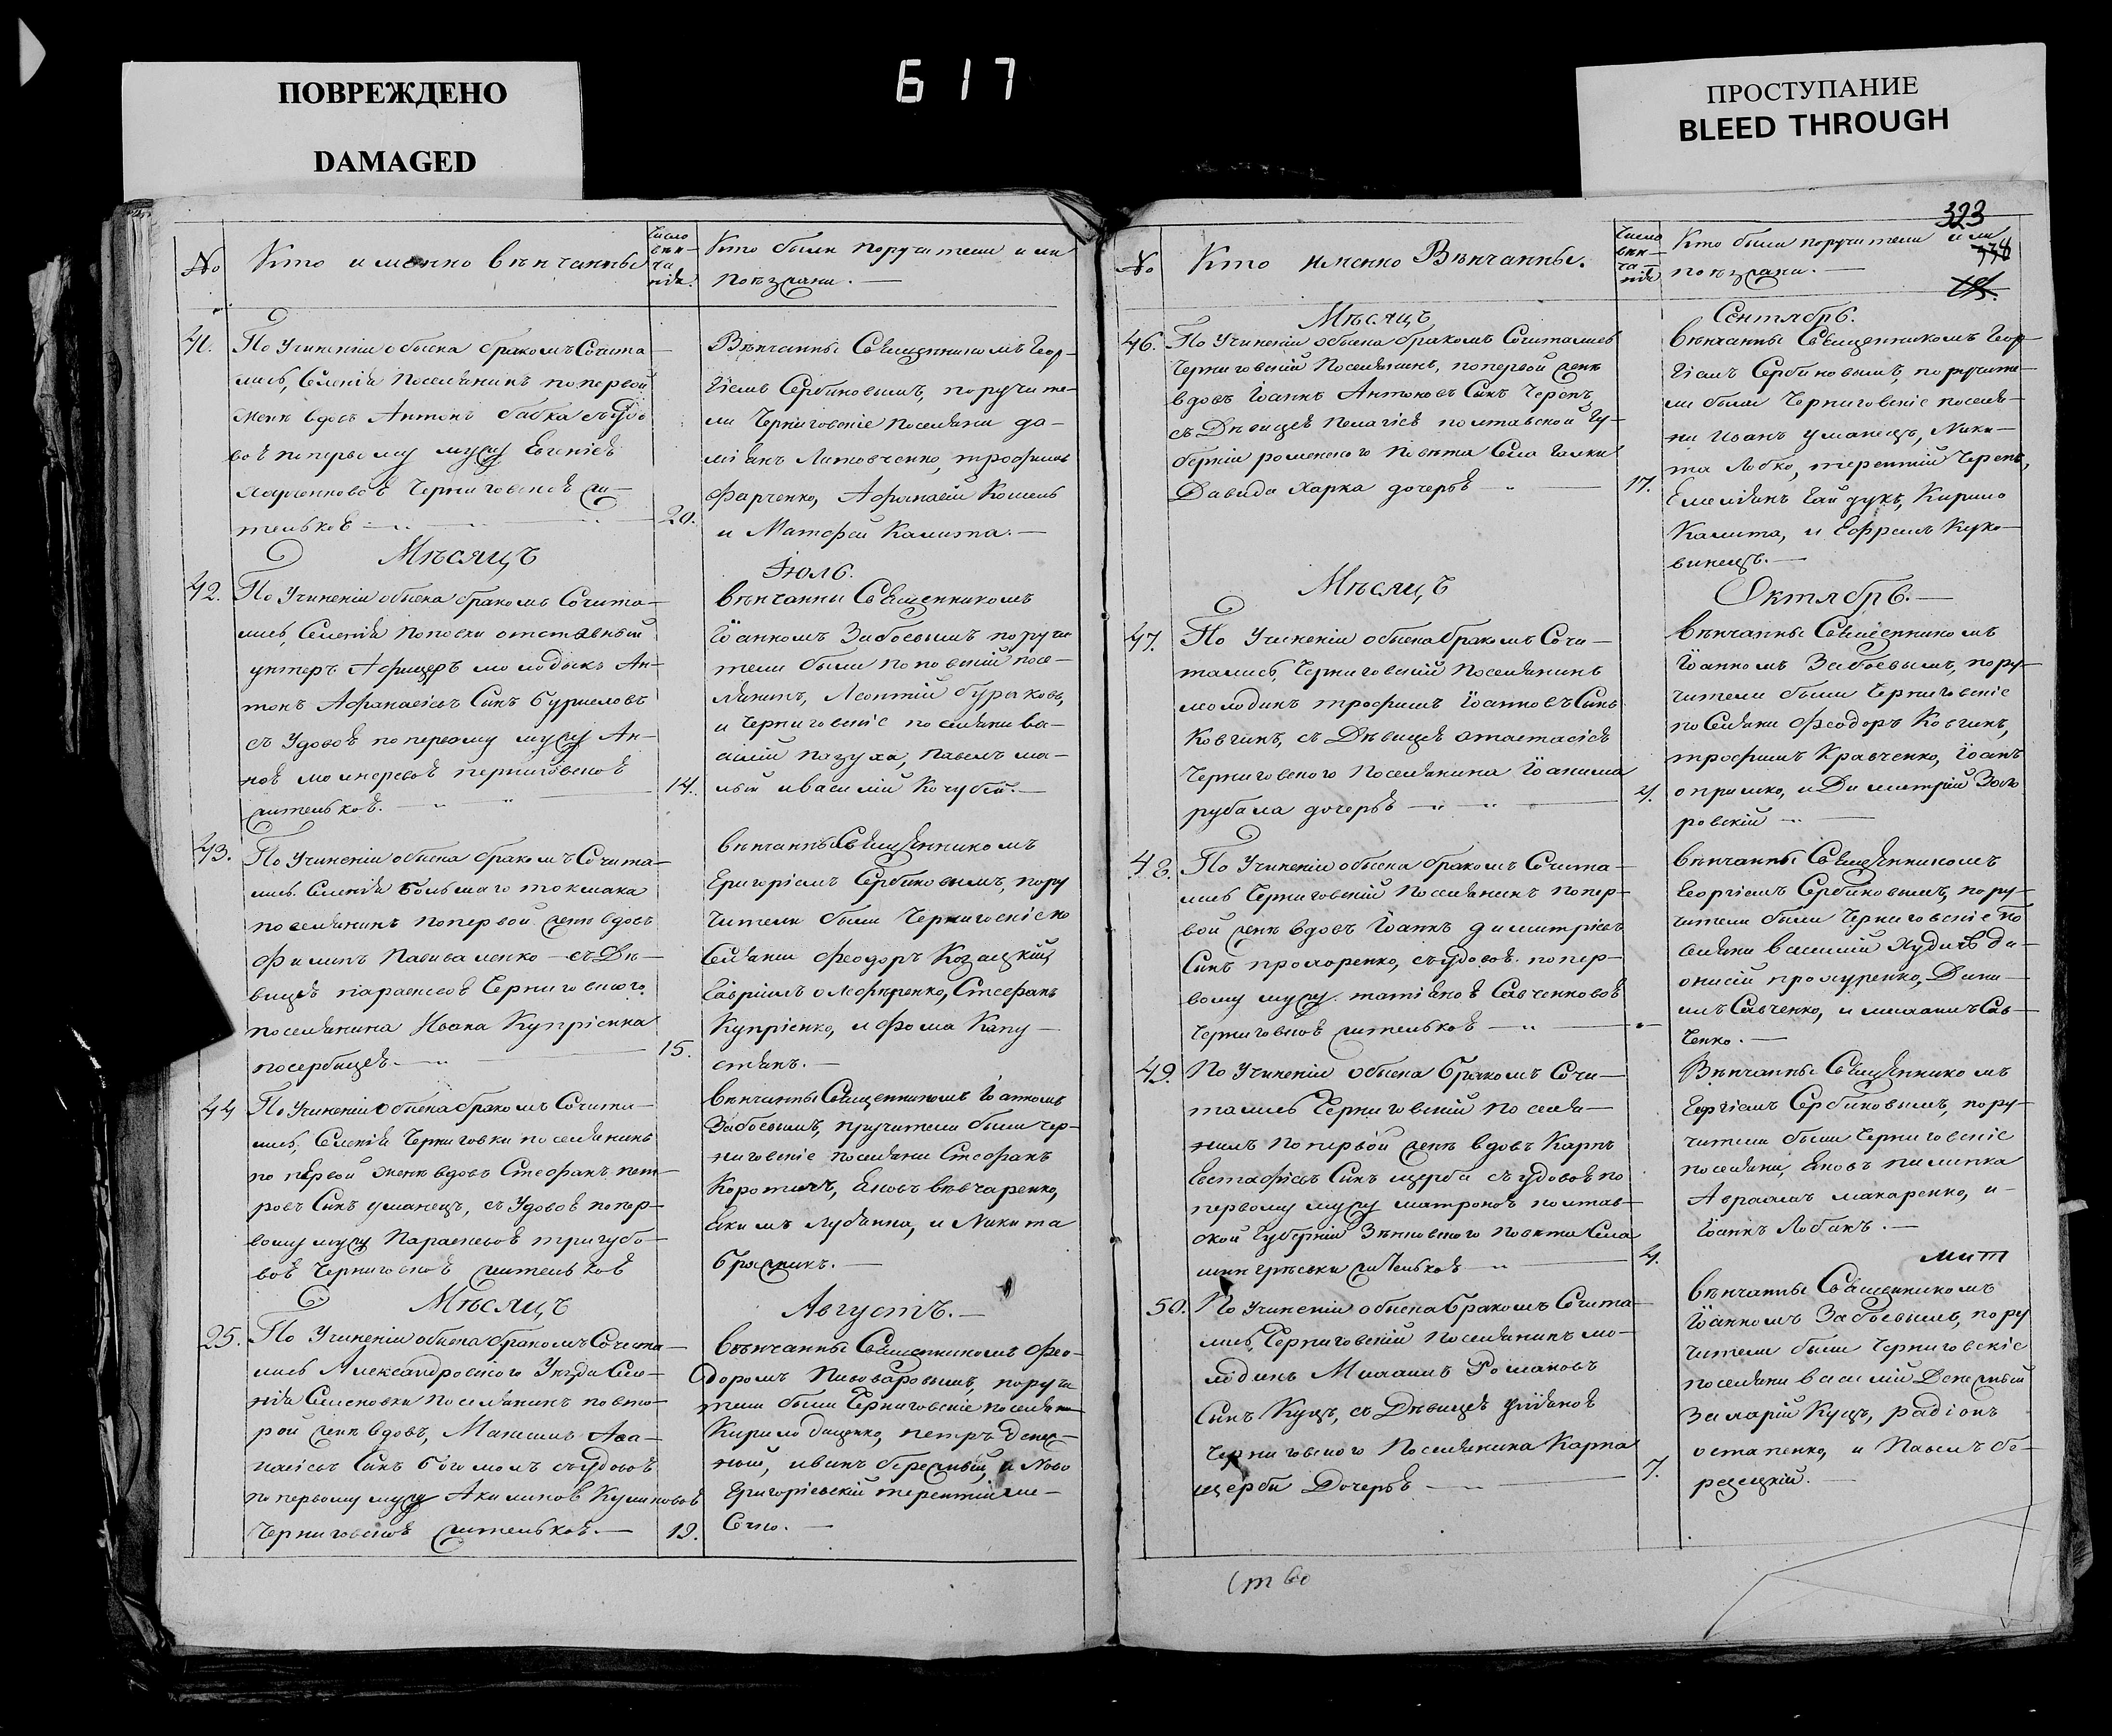 ПОВРЕЖДЕНО
DAMAGED
617
ПРОСТУПАНИЕ
BLEED THROUGH
№
Кто именно вѣнчанны
Число
вѣн-
ча
нія.
Кто были поручители или
поѣзжани. —
41.
По учиненіи обыска бракомъ Сочета-
лись, Селенія поселянинъ по первой
женѣ вдовъ Антонъ бабка съ удо
вой по первому мужу Евгеніей
Черниговской жи-
телькой
20.
Вѣнчанны Священникомъ Геор-
гіемъ Сербиновымъ, поручите-
ли Черниговскіе поселяни да-
міянъ Литовченко, трофимъ
Фарченко, Афанасій Кошель
и Матфей Калита. —
Мѣсяцъ
Іюль.
42.
По учиненіи обыска бракомъ Сочета-
лись, Селенія поповки отставный
унтеръ Афицеръ молодыкъ Ан-
тонъ Афанасіевъ Сынъ Бурмловъ
съ удовой по первому мужу Ан-
ной Черниговской
жителькой. —
14.
вѣнчанны Священникомъ
Іоанномъ Забоевымъ поручи
тели были поповскій посе-
лянинъ, Леонтій бураковъ,
и Черниговскіе поселяни ва-
силій пазуха, павелъ ма-
лый ивасилій Кочубей. —
43.
По учиненіи обыска бракомъ Сочета-
лись Селенія Большаго токмака
поселянинъ по первой женѣ вдовъ
Филипъ Павиваленко съ Дѣ-
вицей параскевой Черниговского
поселянина Ивана Купріенка
посербицей. —
15.
вѣнчанны Священникомъ
Григоріемъ Сербиновымъ, пору
чители были Черниговскіе по
селяни Феодоръ Козацкій,
Гавріилъ олефиренко, Стефанъ
Купріенко, и Фома Капу-
стянъ. —
44
По учиненіи обыска бракомъ Сочета-
лись, Селенія Черниговки поселянинъ
по первой женѣ вдовъ Стефанъ пет-
ровъ Сынъ уманецъ, съ удовой по пер-
вому мужу Параскевой тригубо-
вой Черниговской жителькой
вѣнчанны Священникомъ Іоанномъ
Забоевымъ, пручители были чер-
ниговскіе поселяни Стефанъ
Коротичъ, Яковъ вѣвчаренко,
Яким лубянко, и Никита
Бражникъ. —
Мѣсяцъ
Августъ. —
25.
По учиненіи обыска бракомъ Сочета-
лись Александровского Уѣзда Селе-
нія Семеновки поселянинъ по вто-
рой женѣ вдовъ, Максимъ Афа-
насіевъ Сынъ Богомолъ съ удовой
по первому мужу Акилиной Кулиновой
Черниговской жителькой. —
19.
вѣнчанны Священникомъ Фео-
доромъ Пивоваровымъ, поручи
тели были Черниговскіе поселяни
Кирило баценко, петръ денеж-
ный, иванъ бережный, и Ново
Григоріевскій терентій ли-
Сечко. —
323
338
№
Кто именно Вѣнчанны.
Число
вѣн-
ча-
нія
Кто были поручители или
поѣзжани. —
Мѣсяцъ
Сентябрь.
46.
По учиненіи обыска бракомъ Сочетались
Черниговскій Поселянинъ, по первой женѣ
вдовъ Іоаннъ Антоновъ Сынъ Черепъ,
съ Дѣвицей Пелагіей полтавской гу-
берніи роменского повѣта Села Галки
Давида Харка дочерью
17.
вѣнчанны Священникомъ Геор-
гіемъ Сербиновымъ, поручите-
ли были Черниговскіе поселя-
ни Иванъ уманецъ, Ники-
та Лобко, терентій Черепъ,
Емеліянъ Гайдукъ, Кирило
Калита, и Ефремъ Куко-
винецъ. —
Мѣсяцъ
Октябрь. —
47.
По учиненіи обыска бракомъ Соче-
тались, Черниговскій Поселянинъ
молодикъ трофимъ Іоанновъ Сынъ
Ковгинъ, съ Дѣвицей Анастасіей
Черниговского Поселянина Іоакима
рубала дочерью
4.
вѣнчанны Священникомъ
Іоанномъ Забоевымъ, пору-
чители были Черниговскіе
поселяни Феодоръ Ковгинъ,
трофимъ Кравченко, Іоанъ
опришко, и Димитрій Забо
ровскій
48.
По учиненіи обыска бракомъ Сочета-
лись Черниговскій поселянинъ по пер-
вой женѣ вдовъ Іоаннъ димитріевъ
Сынъ прохоренко, съ удовой по пер-
вому мужу татіяной Савченковой
Черниговской жителькой
вѣнчанны Священникомъ
Георгіемъ Сербиновымъ, пору-
чители были Черниговскіе по
селяни василій Худикъ ди-
онисій прохуренко, Дани-
илъ Савченко, и михаилъ Сав-
ченко. —
49.
По учиненіи обыска Бракомъ Соче-
тались Черниговскій поселя-
нинъ по первой женѣ вдовъ Карпъ
Евстафіевъ Сынъ щерба съ удовой по
первому мужу матроной полтав-
ской Губерніи Зѣнковского повѣта Села
жителькой
4.
Вѣнчанны Священникомъ
Георгіемъ Сербиновымъ, пору-
чители были Черниговскіе
поселяни, Яковъ пилипка
Авраамъ макаренко, и-
Іоаннъ Лобанъ. —
50.
По учиненіи обыска Бракомъ Сочета-
лись, Черниговскій поселянинъ мо-
лодикъ Михаилъ Романовъ
Сынъ Куцъ, съ Дѣвицей уліяной
Черниговского Поселянина Карпа
щерби Дочерью
7.
вѣнчанны Священникомъ
Іоанномъ Забоевымъ, пору
чители были Черниговскіе
поселяни василій Денежный
Захарій Куцъ, радіонъ
остапенко, и Павелъ бе-
резецкій. —